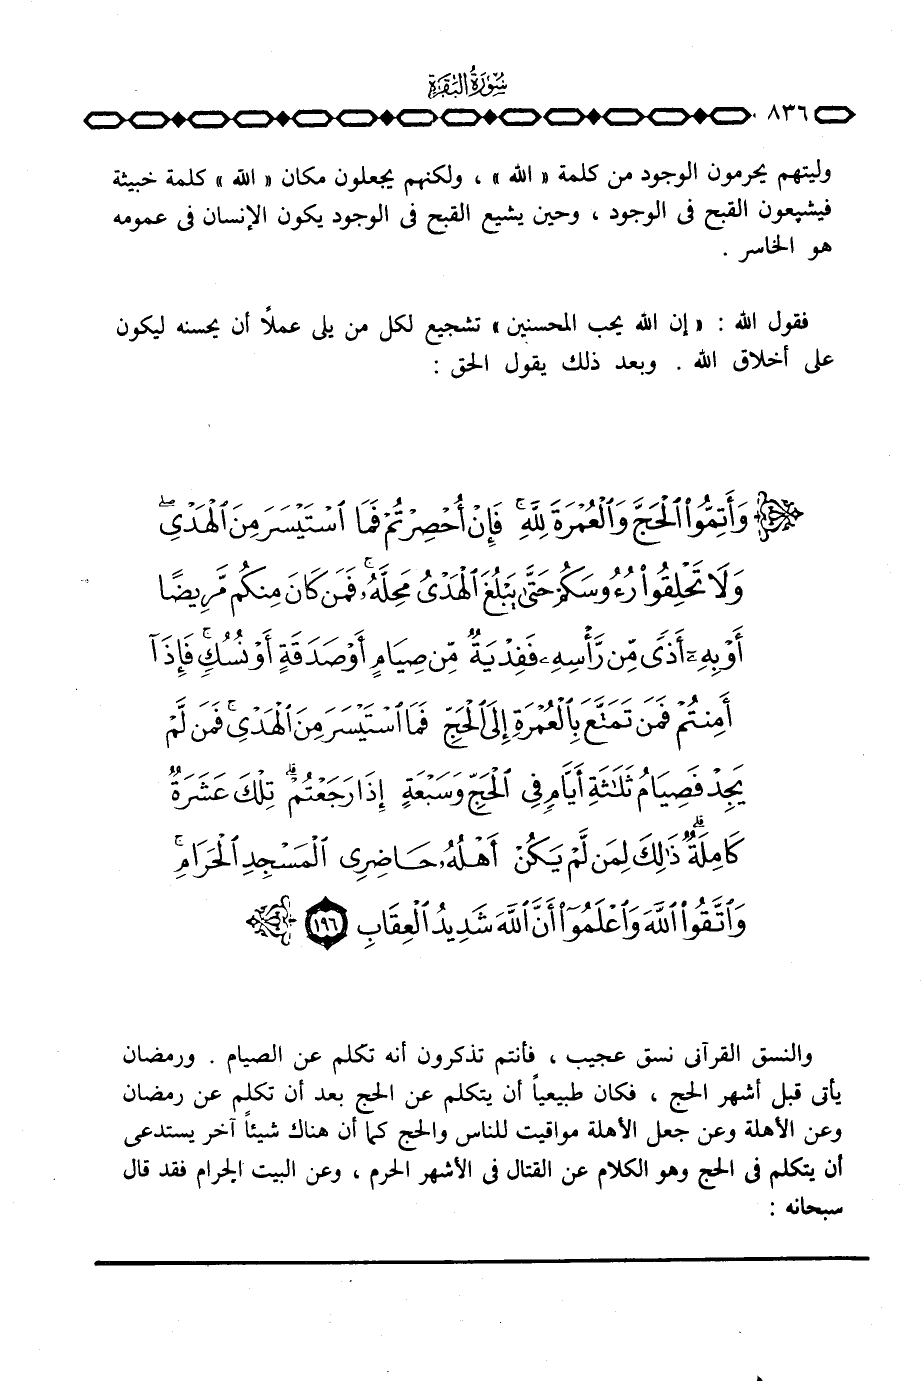 سُورَةُ البَقَرَةِ
٨٣٦
وليتهم يحرمون الوجود من كلمة « الله » ، ولكنهم يجعلون مكان « الله » كلمة خبيثة
فيشيعون القبح فى الوجود ، وحين يشيع القبح فى الوجود يكون الإنسان فى عمومه
هو الخاسر .
فقول الله : « إن الله يحب المحسنين » تشجيع لكل من يلى عملاً أن يحسنه ليكون
على أخلاق الله . وبعد ذلك يقول الحق :
وَأَتِمُّوا۟ ٱلْحَجَّ وَٱلْعُمْرَةَ لِلَّهِ ۚ فَإِنْ أُحْصِرْتُمْ فَمَا ٱسْتَيْسَرَ مِنَ ٱلْهَدْىِ ۖ
وَلَا تَحْلِقُوا۟ رُءُوسَكُمْ حَتَّىٰ يَبْلُغَ ٱلْهَدْىُ مَحِلَّهُۥ ۚ فَمَن كَانَ مِنكُم مَّرِيضًا
أَوْ بِهِۦٓ أَذًى مِّن رَّأْسِهِۦ فَفِدْيَةٌ مِّن صِيَامٍ أَوْ صَدَقَةٍ أَوْ نُسُكٍ ۚ فَإِذَآ
أَمِنتُمْ فَمَن تَمَتَّعَ بِٱلْعُمْرَةِ إِلَى ٱلْحَجِّ فَمَا ٱسْتَيْسَرَ مِنَ ٱلْهَدْىِ ۚ فَمَن لَّمْ
يَجِدْ فَصِيَامُ ثَلَٰثَةِ أَيَّامٍ فِى ٱلْحَجِّ وَسَبْعَةٍ إِذَا رَجَعْتُمْ ۗ تِلْكَ عَشَرَةٌ
كَامِلَةٌ ۗ ذَٰلِكَ لِمَن لَّمْ يَكُنْ أَهْلُهُۥ حَاضِرِى ٱلْمَسْجِدِ ٱلْحَرَامِ ۚ
وَٱتَّقُوا۟ ٱللَّهَ وَٱعْلَمُوٓا۟ أَنَّ ٱللَّهَ شَدِيدُ ٱلْعِقَابِ ١٩٦
والنسق القرآنى نسق عجيب ، فأنتم تذكرون أنه تكلم عن الصيام . ورمضان
يأتى قبل أشهر الحج ، فكان طبيعياً أن يتكلم عن الحج بعد أن تكلم عن رمضان
وعن الأهلة وعن جعل الأهلة مواقيت للناس والحج كما أن هناك شيئاً آخر يستدعى
أن يتكلم فى الحج وهو الكلام عن القتال فى الأشهر الحرم ، وعن البيت الحرام فقد قال
سبحانه :